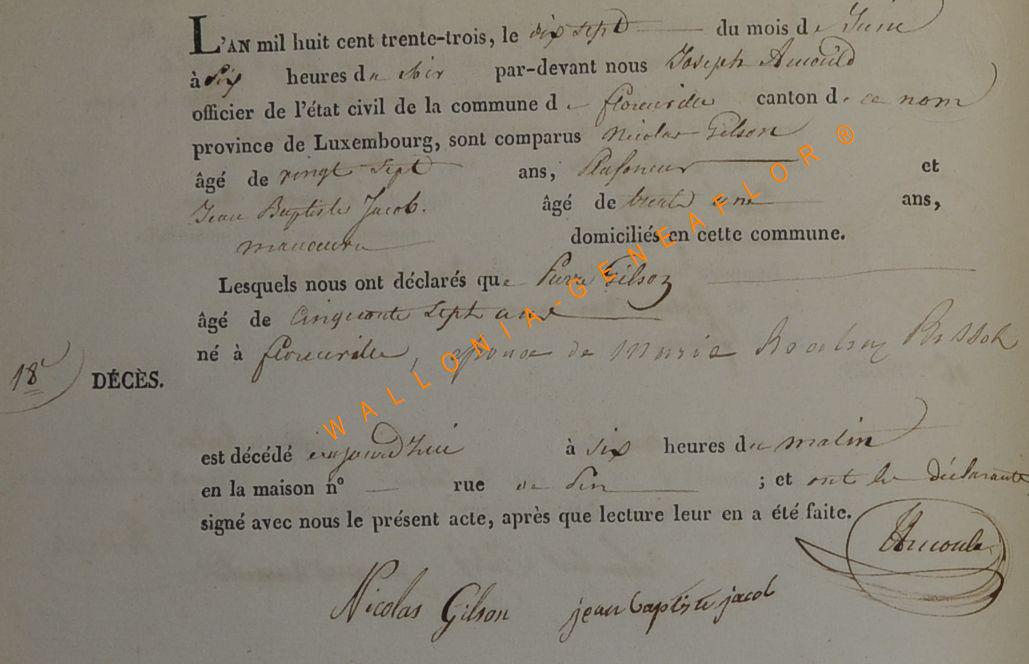 L'AN mil huit cent trente-trois, le dix sept du mois de Juin
à six heures du soir par-devant nous Joseph Arnould
officier de l'état civil de la commune de florenville canton de ce nom
province de Luxembourg, sont comparus Nicolas Gilson
âgé de vingt sept ans, Plafoneur et
Jean Baptiste Jacob. âgé de trente ans,
manoeuvre domiciliés en cette commune.
Lesquels nous ont déclarés que Pierre Gilson
âgé de cinquante sept ans
né à florenville, epoux de Marie
18e DÉCÈS.
est décédé aujourd'hui à six heures du matin
en la maison nº rue ; et ont les déclarants
signé avec nous le présent acte, après que lecture leur en a été faite.
Arnould
Nicolas Gilson jean baptiste jacob
WALLONIA-GENEAFLOR ®